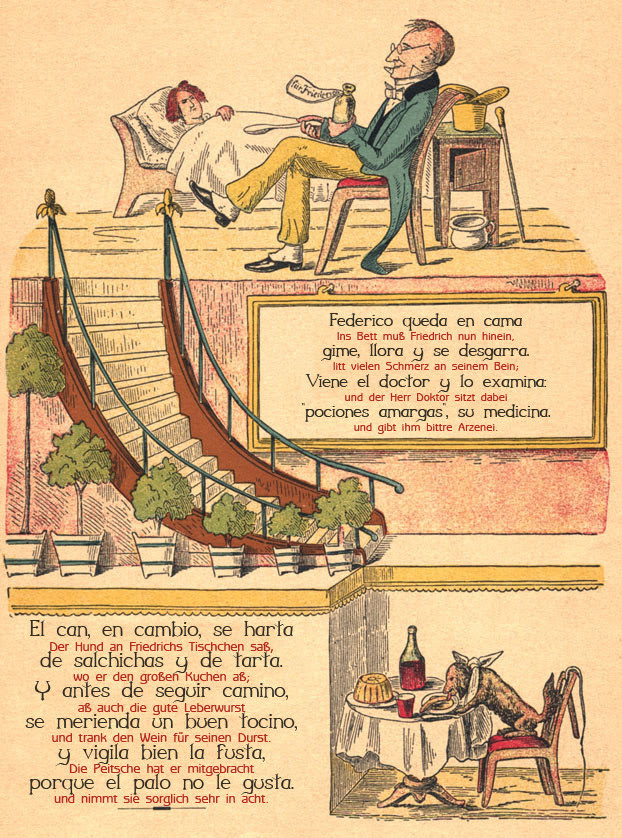 für Friederich
Federico queda en cama
Ins Bett muß Friedrich nun hinein,
gime, llora y se desgarra.
litt vielen Schmerz an seinem Bein;
Viene el doctor y lo examina:
und der Herr Doktor sitzt dabei
"pociones amargas", su medicina.
und gibt ihm bittre Arzenei.
El can, en cambio, se harta
Der Hund an Friedrichs Tischchen saß,
de salchichas y de tarta.
wo er den großen Kuchen aß;
Y antes de seguir camino,
aß auch die gute Leberwurst
se merienda un buen tocino,
und trank den Wein für seinen Durst.
y vigila bien la fusta,
Die Peitsche hat er mitgebracht
porque el palo no le gusta.
und nimmt sie sorglich sehr in acht.